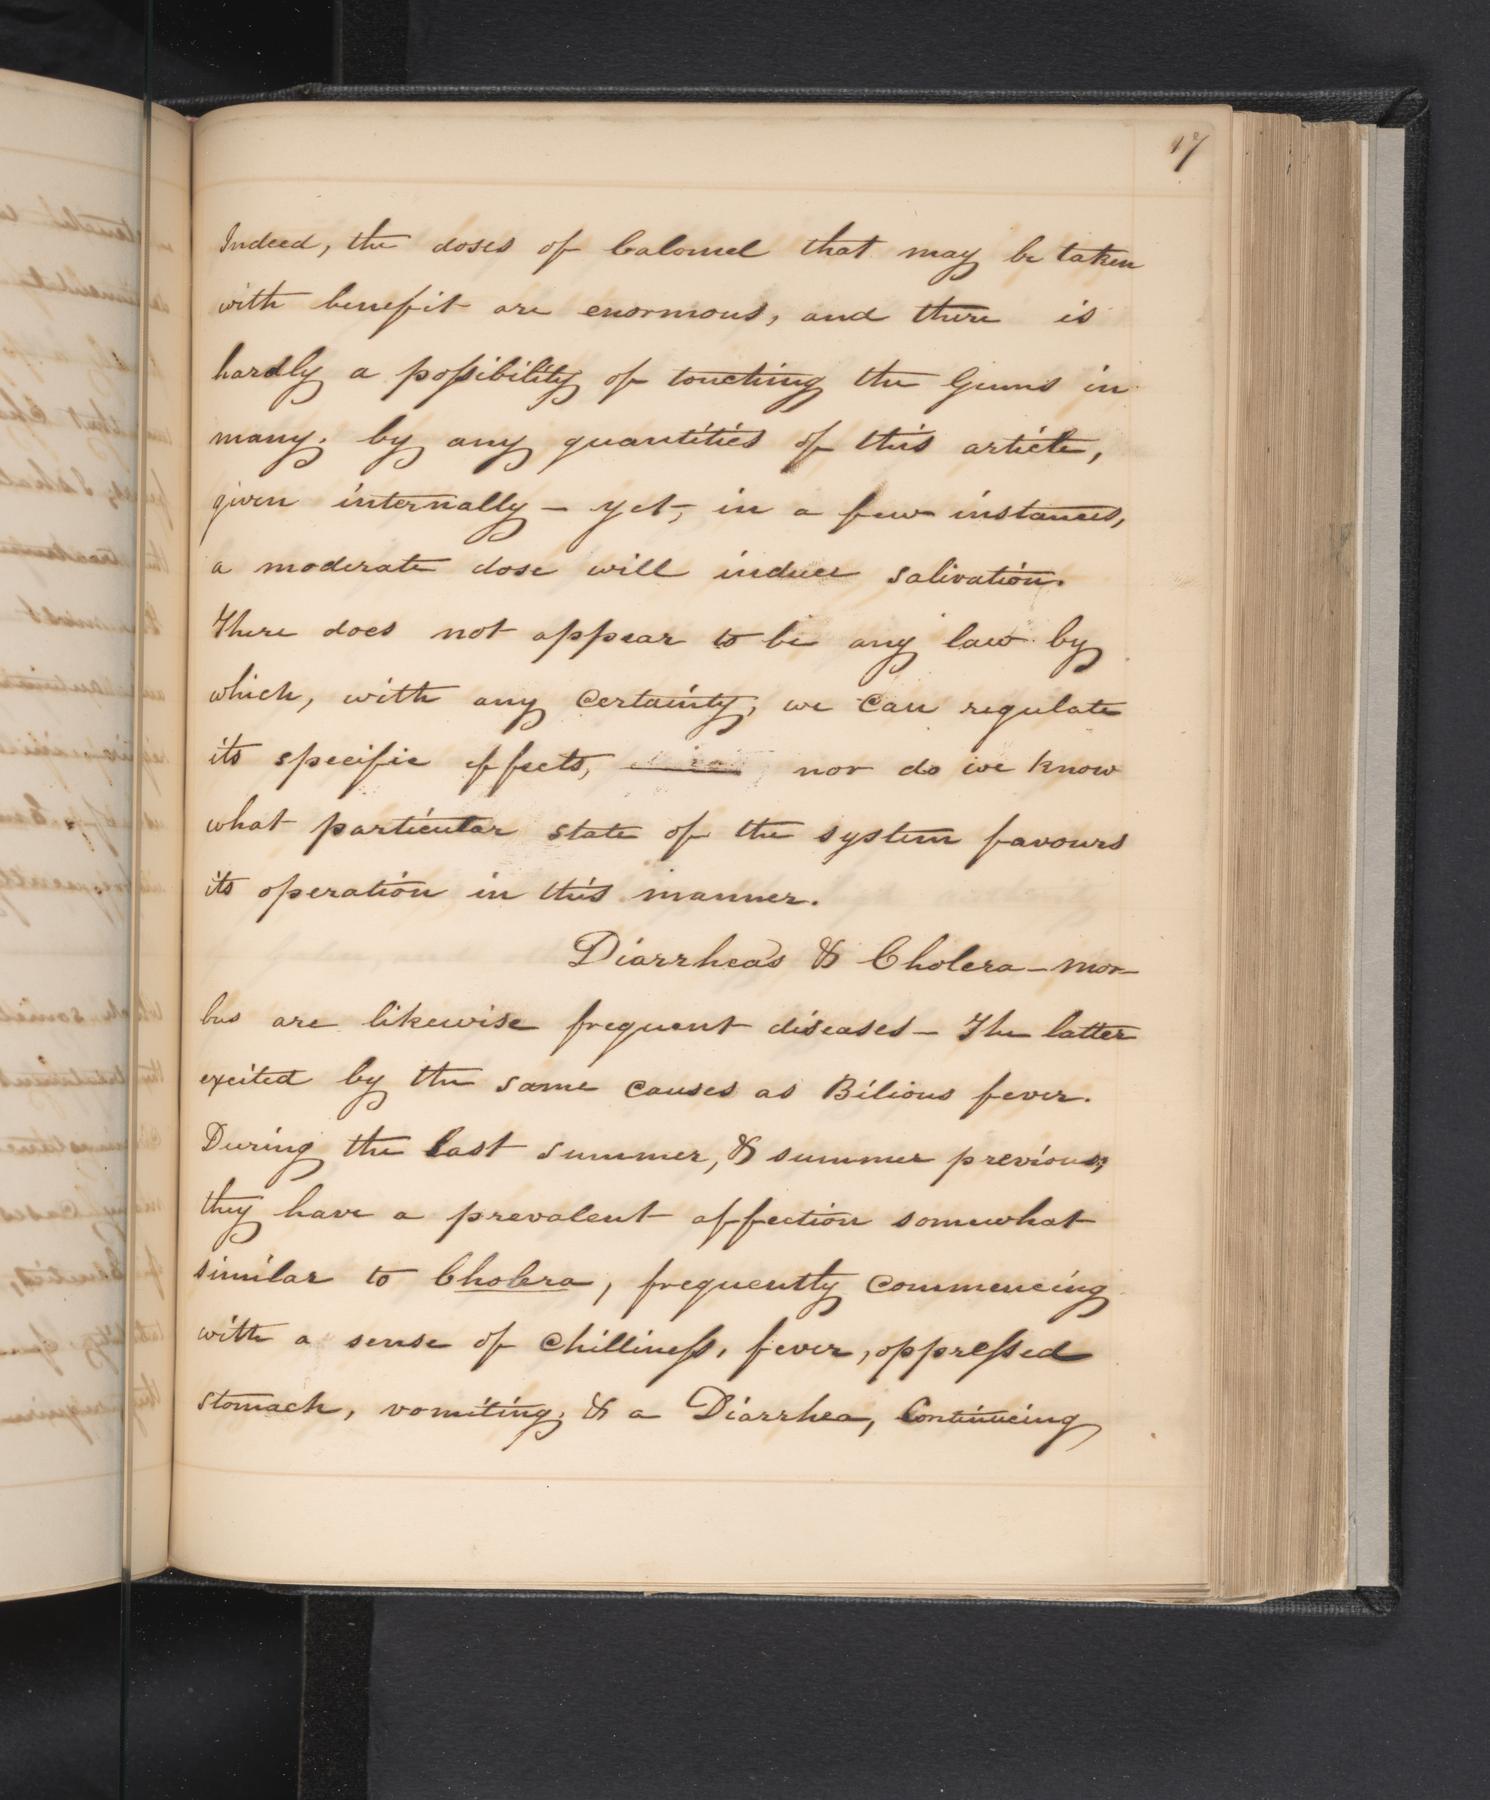 17
Indeed, the doses of Calomel that may be taken
with benefit are enormous, and there is
hardly a poſsibility of touching the Gums in
many, by any quantities of this article,
given internally – yet, in a few instances,
a moderate dose will induce salivation.
There does not appear to be any law by
which, with any certainty, we can regulate
its specific effects, nor do we know
what particular state of the system favours
its operation in this manner.
Diarrhea's & Cholera-mor-
bus are likewise frequent diseases – The latter
excited by the same causes as Bilious fever.
During the last summer, & summer previous,
they have a prevalent affection somewhat
similar to Cholera, frequently commencing
with a sense of chillineſs, fever, oppreſsed
stomach, vomiting, & a Diarrhea, Continueing